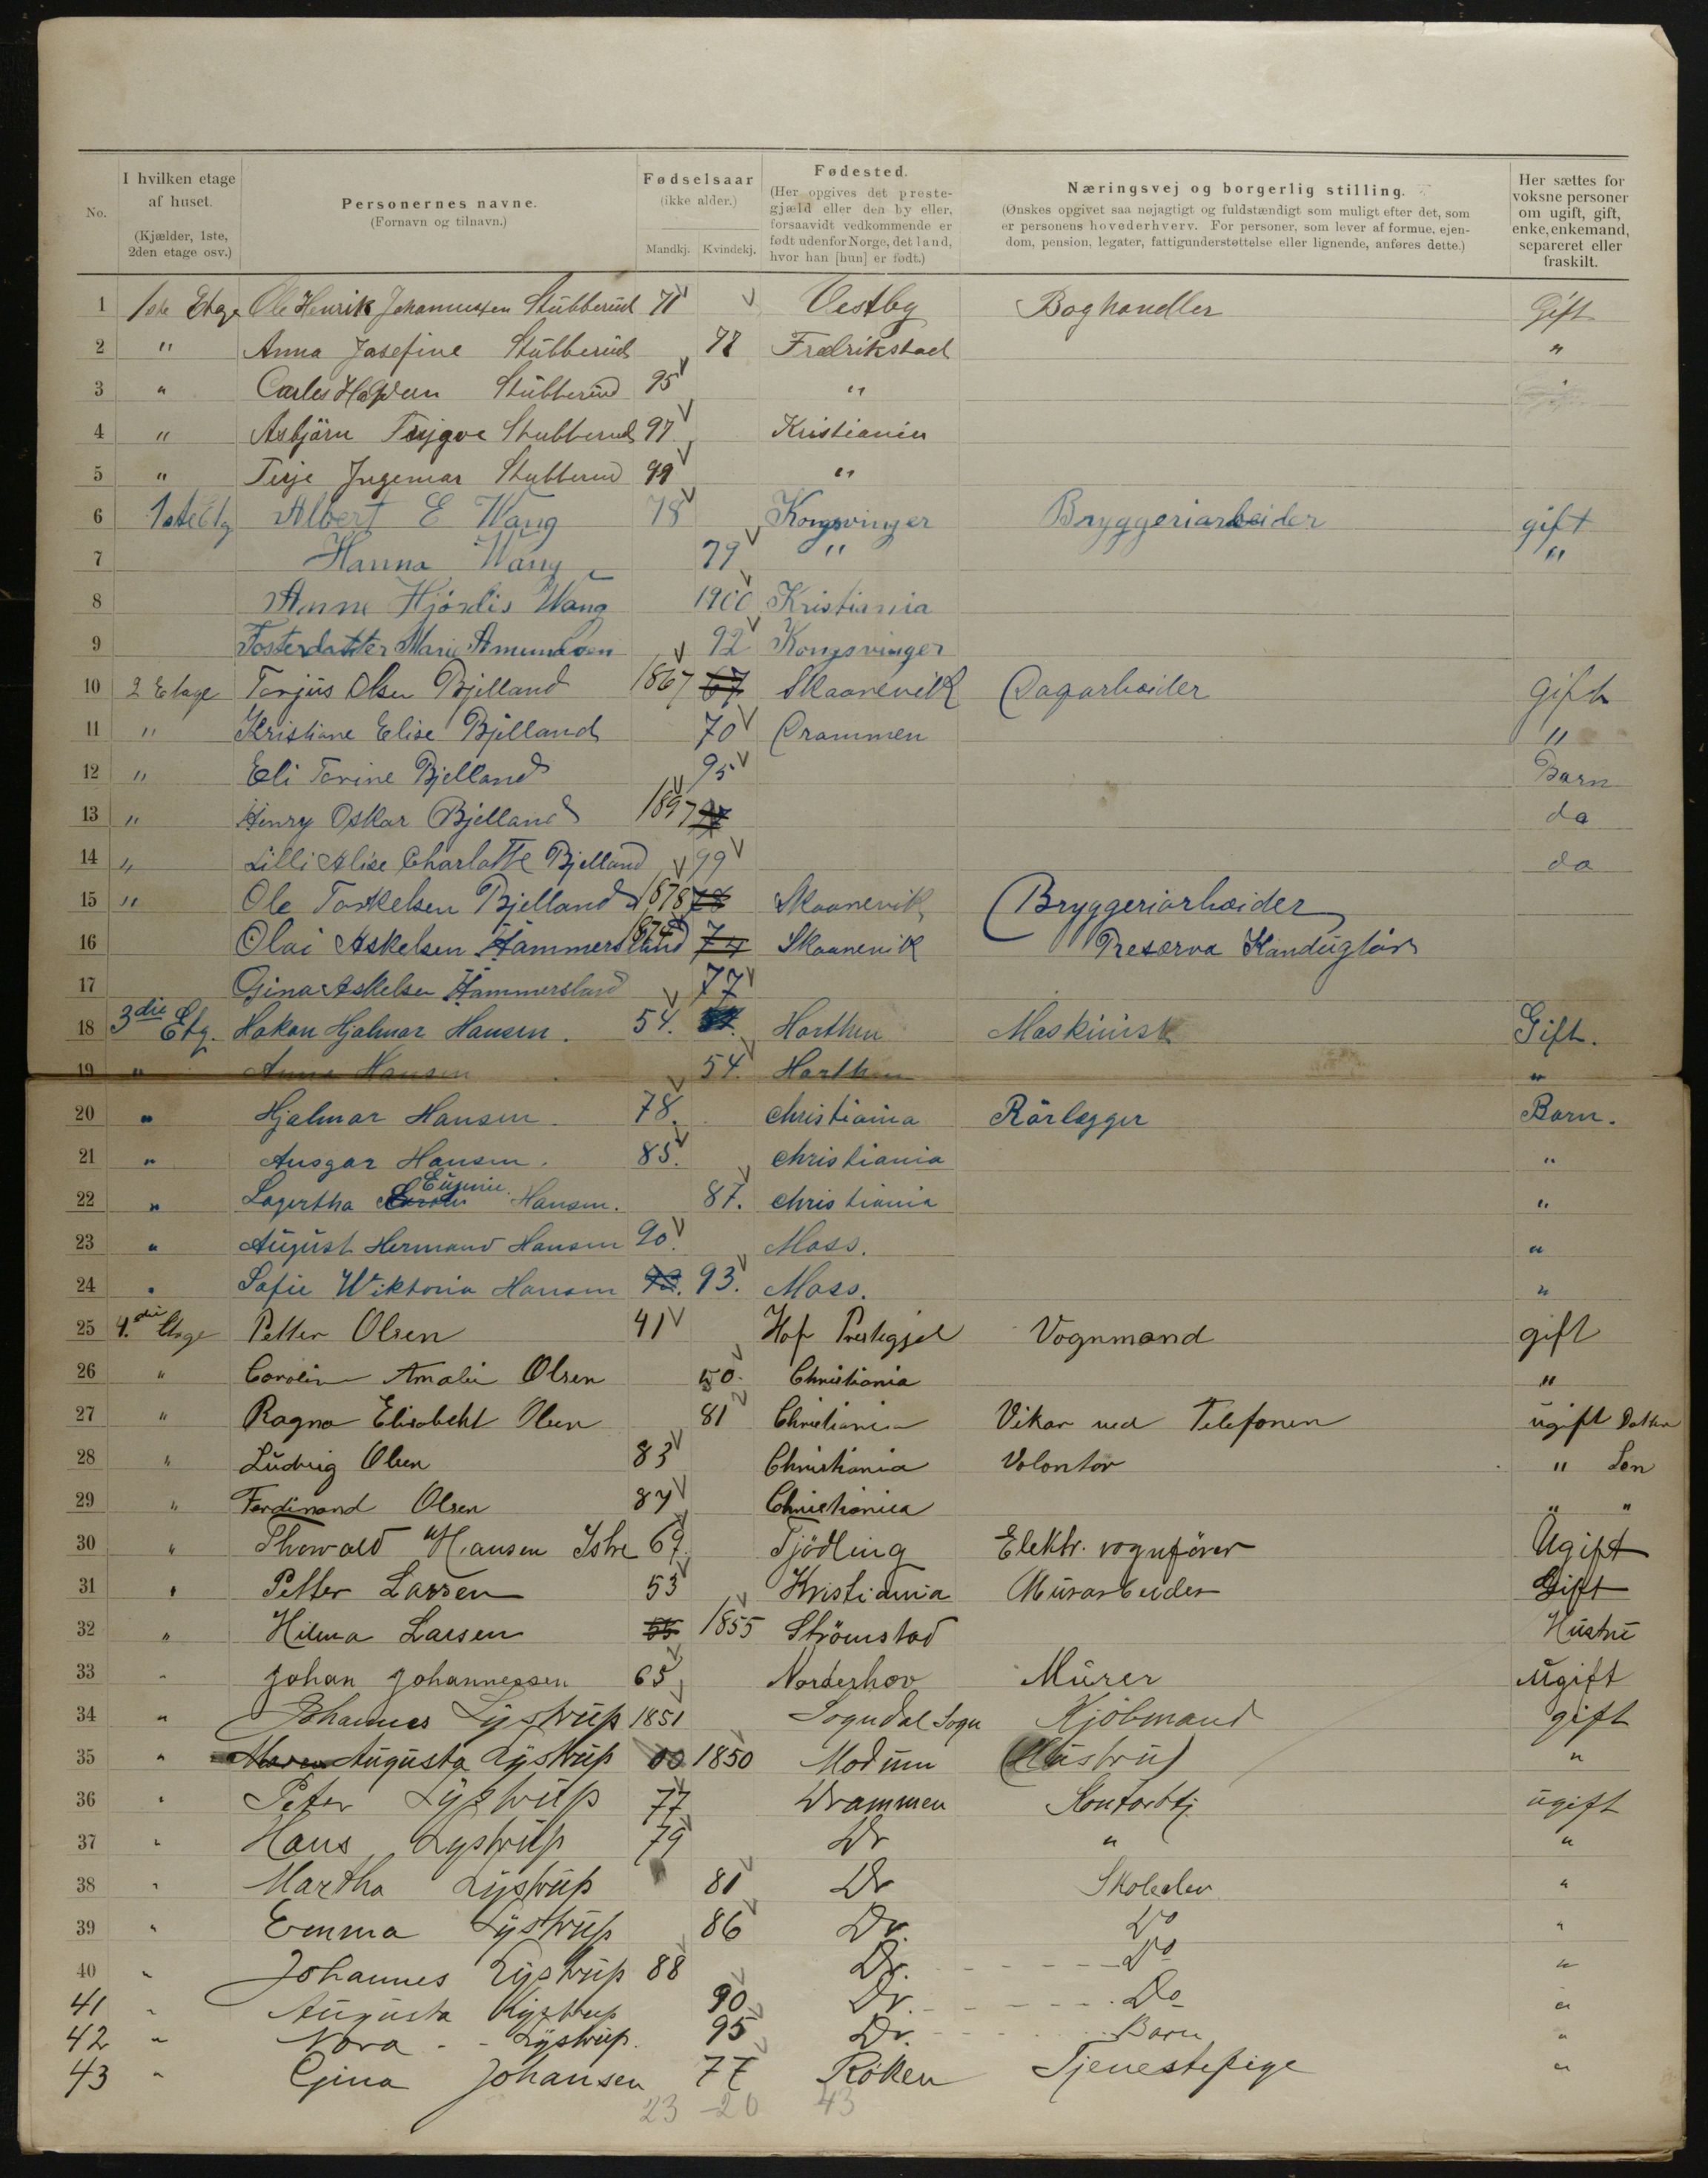 No.
I hvilken etage af huset. (Kjælder, 1ste, 2den etage osv.)
Personernes navne. (Fornavn og tilnavn.)
Fødselsaar (ikke alder.) Mandkj. Kvindekj.
Fødested. (Her opgives det prestegjæld eller den by eller, forsaavidt vedkommende er født udenfor Norge, det land, hvor han [hun] er født.)
Næringsvej og borgerlig stilling. (Ønskes opgivet saa nøjagtigt og fuldstændigt som muligt efter det, som er personens hovederhverv. For personer, som lever af formue, ejendom, pension, legater, fattigunderstøttelse eller lignende, anføres dette.)
Her sættes for voksne personer om ugift, gift, enke, enkemand, separeret eller fraskilt.
1 1ste Etage Ole Henrik Stubberud 71 Vestby Boghandler Gift
2 " Anna Josefine Stubberud Fredrikstad "
3 " Stubberud 95 "
4 " Asbjörn Trygve Stubberud 97 Kristiania
5 " Terje Ingemar Stubberud 99 "
6 1ste Etg Albert E Wang 78 Kongsvinger Bryggeriarbeider gift
7 Hanna Wang 79 " "
8 Anne Hjördis Wang 1900 Kristiania
9 Fosterdatter Marie Amundsen 92 Kongsvinger
10 2 Etage Torjus Olsen Bjelland 1867 67 Skaanevik Dagarbeider Gift
11 " Kristiane Elise Bjelland 70 Drammen "
12 " Eli Torine Bjelland 95 Barn
13 " Henry Oskar Bjelland 1897 97 do
14 " Lilli Alise Charlotte Bjelland 99 do
15 " Ole Torkelsen Bjelland 1878 78 Skaanevik Bryggeriarbeider
16 Olai Askelsen Hammersland 1874 74 Skaanevik Preserva
17 Gina Askelsen Hammersland 77
18 3die Etg. Hakon Hjalmar Hansen. 54. Horthen Maskinist Gift.
19 " Anna Hansen 54. Horthen "
20 " Hjalmar Hansen. 78. Christiania Rörlegger Barn.
21 " Ansgar Hansen. 85. Christiania "
22 " Lagertha Eugenie Hansen. 87. Christiania "
23 " August Hermand Hansen 90. Moss. "
24 " Sofie Wiktoria Hansen 93. Moss. "
25 4.die Etage Petter Olsen 41 Hof Prestegjel Vognmand gift
26 " Caroline Amalie Olsen 50. Christiania "
27 " Ragna Elisabeht Olsen 81 Christiania Vikar ved Telefonen ugift Datter
28 " Ludvig Olsen 83 Christiania Volontør " Søn
29 " Ferdinand Olsen 87 Christiania " "
30 " Thorvald Hansen Istre 67. Tjødling Elektr. vognfører Ugift
31 " Petter Larsen 53 Kristiania Murarbeider Gift
32 " Hilma Larsen 55 1855 Strömstad Hustru
33 " Johan Johannessen 65 Norderhov Murer ugift
34 " Johannes Lystrup 1851 Sogndal Sogn Kjöbmand gift
35 " Maren Augusta Lystrup 1850 Modum (Hustru) "
36 " Peter Lystrup 77 Drammen Kontorbtj ugift
37 " Hans Lystrup 79 Dr " "
38 " Martha Lystrup 81 Dr Skoleelev "
39 " Emma Lystrup 86 Dr. Do "
40 " Johannes Lystrup 88 Dr. Do "
41 " Augusta Lystrup 90 Dr. Do "
42 " Nora Lystrup. 95 Dr. Barn "
43 " Gina Johansen 77 Röken Tjenestepige "
23 - 20 43